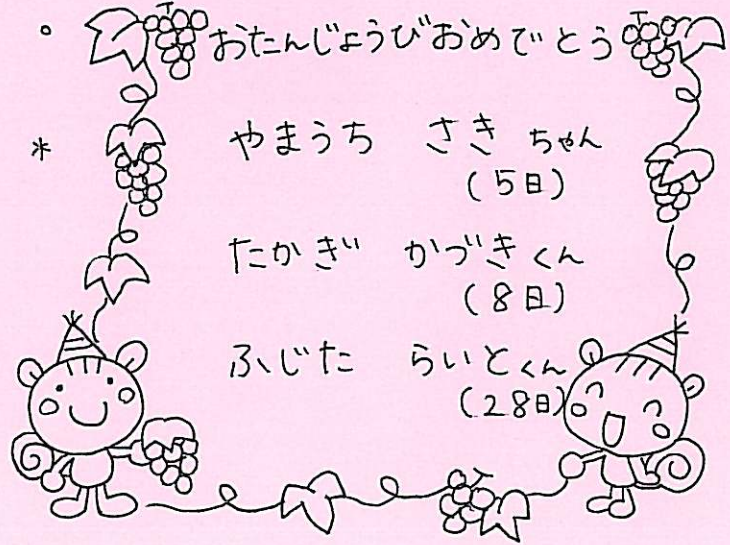 おたんじょうびおめでとう
* やまうち さき ちゃん
(5日)
たかぎ かづき くん
(8日)
ふじた らいと くん
(28日)